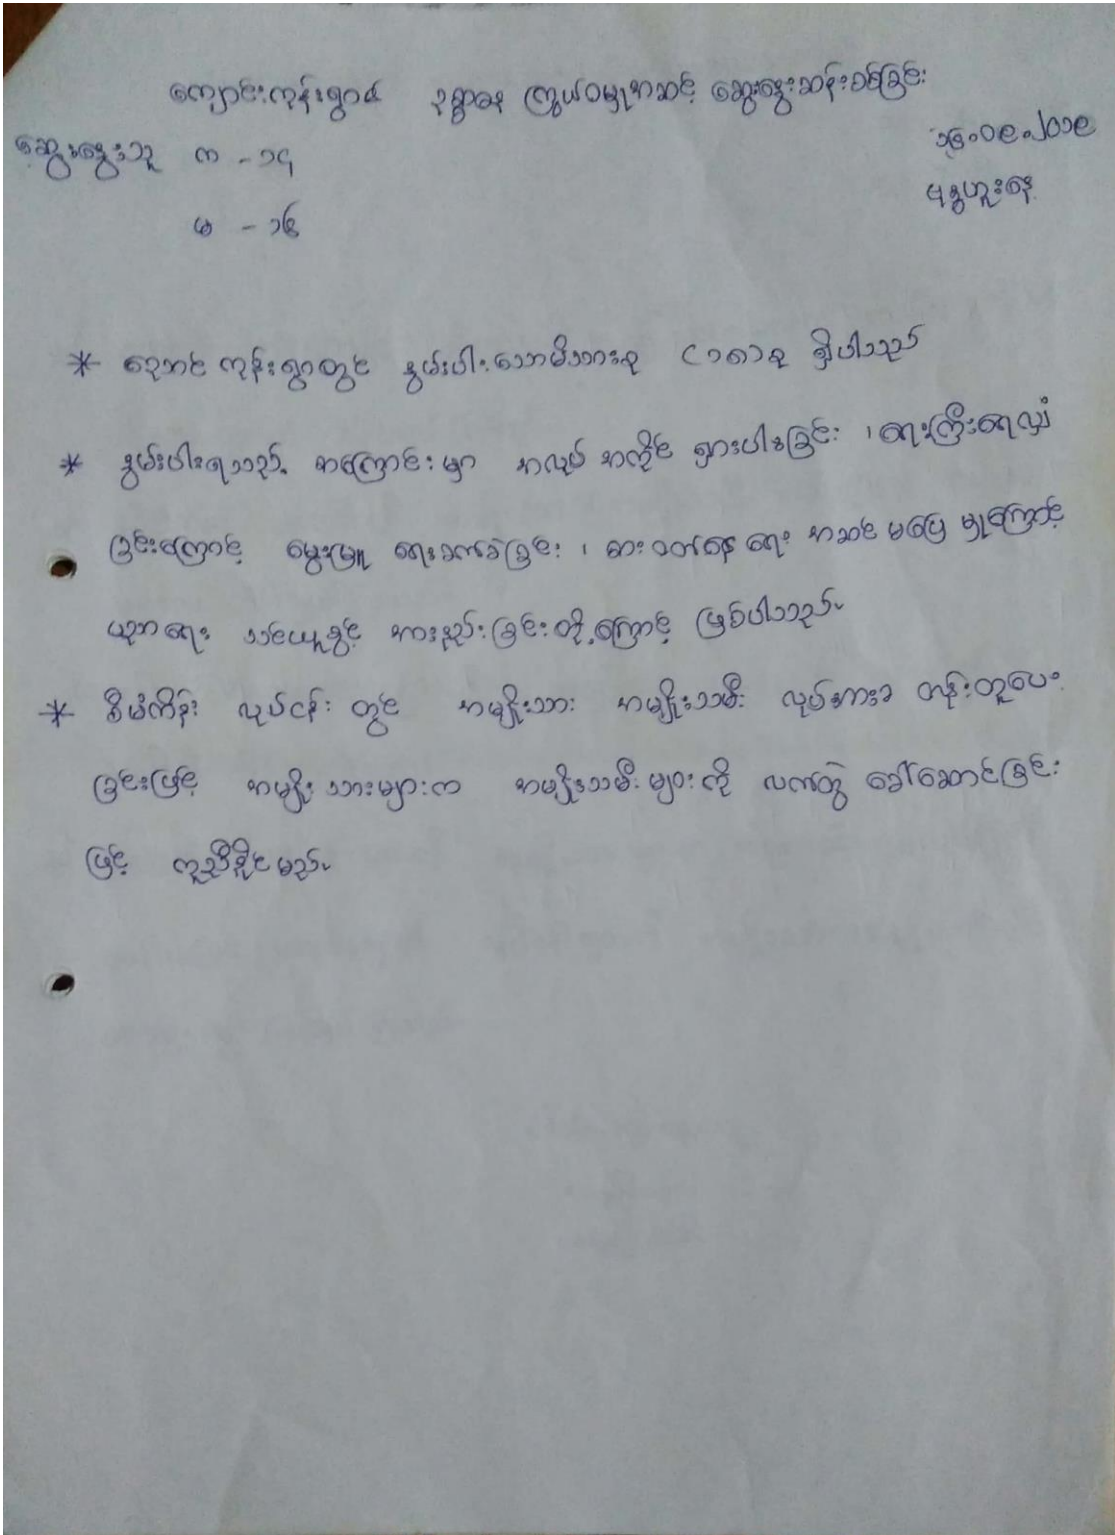 ကျောင်းကုန်းရွာ၏ ဥစ္စာဓန ကြွယ်ဝမှုအဆင့် ဆွေးနွေးဆန်းစစ်ခြင်း
၁၆.၀၉.၂၀၁၉
ဆွေးနွေးသူ က - ၁၄
မုန္လဟူးနေ့
မ - ၁၆
* ကုန်းရွာတွင် နွမ်းပါးသောမိသားစု (၁၈)စု ရှိပါသည်
* နွမ်းပါးရသည့် အကြောင်းမှာ အလုပ် အကိုင် ရှားပါးခြင်း ၊ ရေကြီးရေလျှံ
ခြင်းကြောင့် မွေးမြူ ရေးခက်ခဲခြင်း ၊ စားဝတ်နေရေး အဆင် မပြေ မှုကြောင့်
ပညာရေး သင်ယူခွင့် အားနည်းခြင်းတို့ကြောင့် ဖြစ်ပါသည်။
* စီမံကိန်း လုပ်ငန်း တွင် အမျိုးသား အမျိုးသမီး လုပ်အားခ တန်းတူပေး
ခြင်းဖြင့် အမျိုးသားများက အမျိုးသမီးများကို လက်တွဲ ခေါ်ဆောင်ခြင်း
ဖြင့် ကူညီနိုင်မည်။